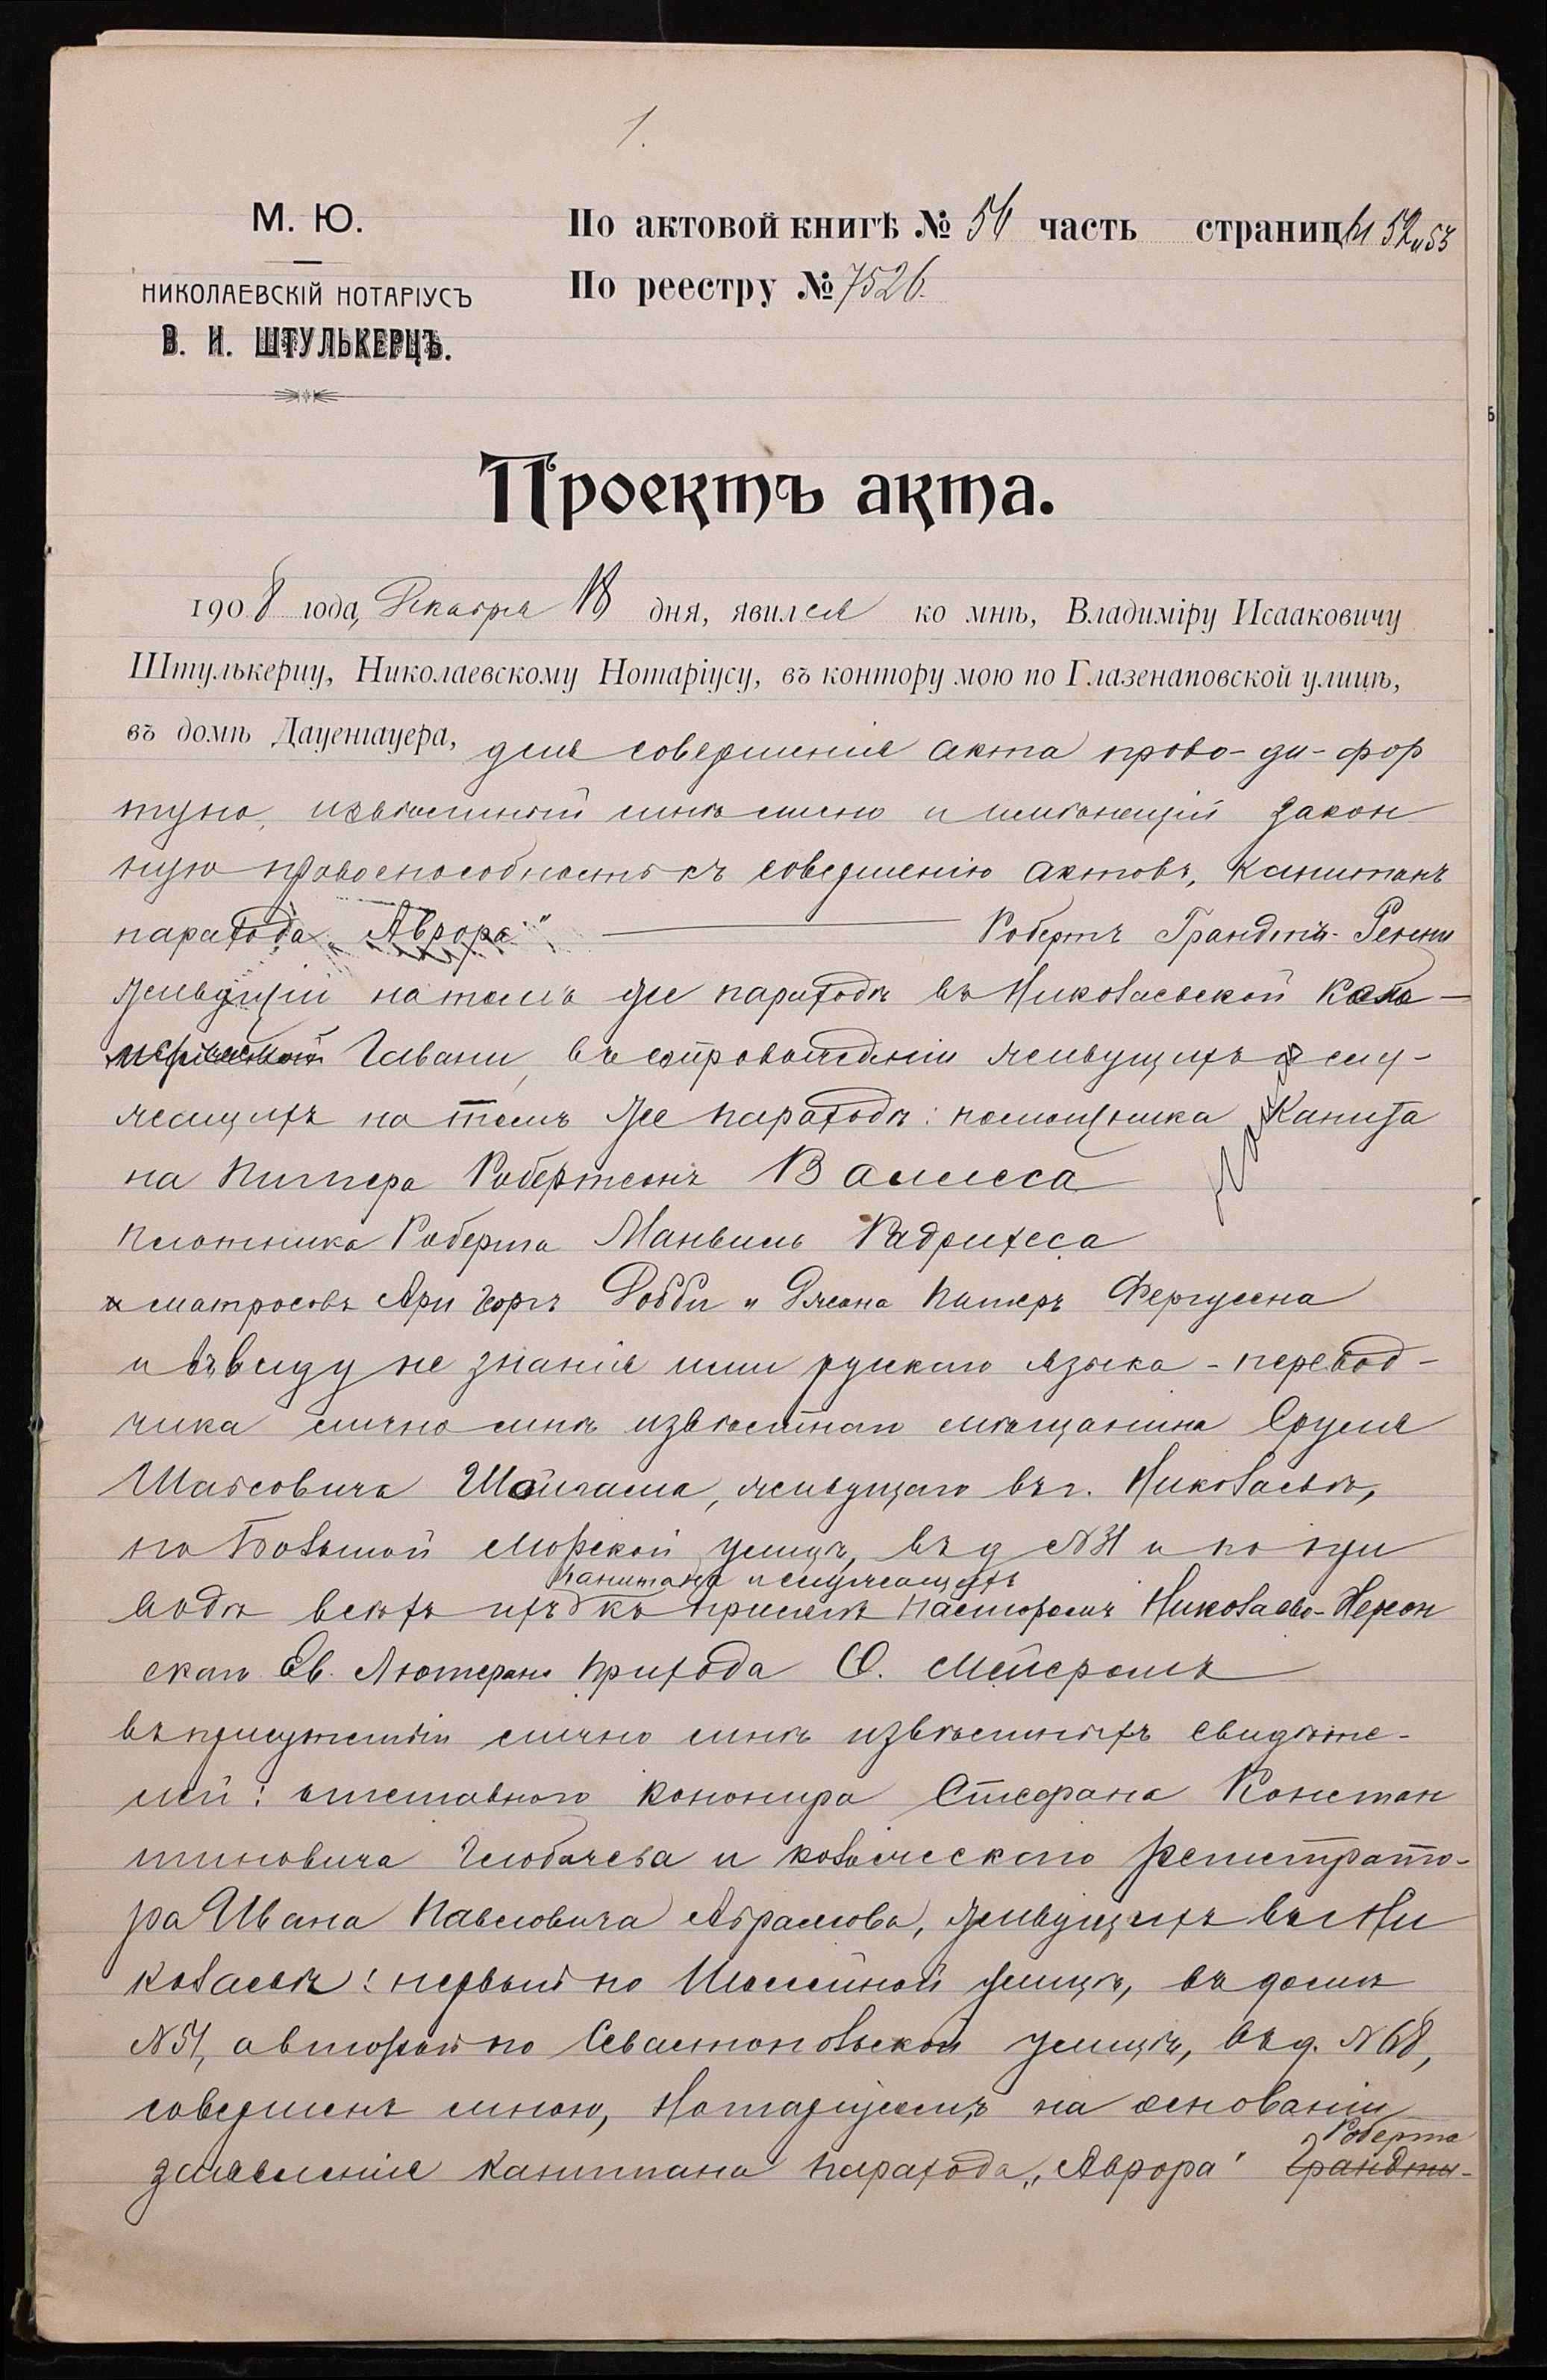 1.
М. Ю.
НИКОЛАЕВСКІЙ НОТАРІУСЪ
В. И. ШТУЛЬКЕРЦЪ.
По актовой книгѣ № 56 часть страницы 52 и 53
По реестру № 7526.
Проектъ акта.
1908 года, Декабря 18 дня, явился ко мнѣ, Владиміру Исааковичу
Штулькерцу, Николаевскому Нотаріусу, въ контору мою по Глазенаповской улицѣ,
въ домѣ Дауенгауера, для совершенія акта прово-ди-фор
туно, извѣстный мнѣ лично и имѣющій закон
ную правоспособность къ совершенію актовъ, капитанъ
парахода „Аврора" Робертъ Грандти-
живущій на томъ же параходѣ въ Николаевской
Гавани, въ сопровожденіи живущихъ и слу-
жащихъ на томъ же параходѣ: помощника Капита
на Питера Робертсонъ Валлеса
плотника Роберта Манвиль Радрихеса
и матросовъ Ари Горгъ Добби и Джона Питеръ Фергусена
и въ виду не знанія ими рускаго языка - перевод-
чика лично мнѣ извѣстнаго мѣщанина Сруля
Шаѣвича, живущаго въ г. Николаевѣ,
по Большой Морской улицѣ, въ д № 31 и по при
капитана и служащихъ
водѣ всѣхъ ихъ къ присягѣ пасторомъ Николаево-Херсон
скаго Ев. Лютеранс прихода О. Мейеромъ
въ присутствіи лично мнѣ извѣстныхъ свидѣте-
лей: отставного канонира Стефана Констан
тиновича Глобачева и колежскаго регистрато-
ра Ивана Павловича Абрамова, живущихъ въ Ни
колаевѣ: первый по Шоссейной улицѣ, въ домѣ
№ 51, а второй по Севастопольской улицѣ, въ д. № 68,
совершенъ мною, Нотаріусомъ, на основаніи
Роберта
заявленія капитана парахода „Аврора" Грандти-